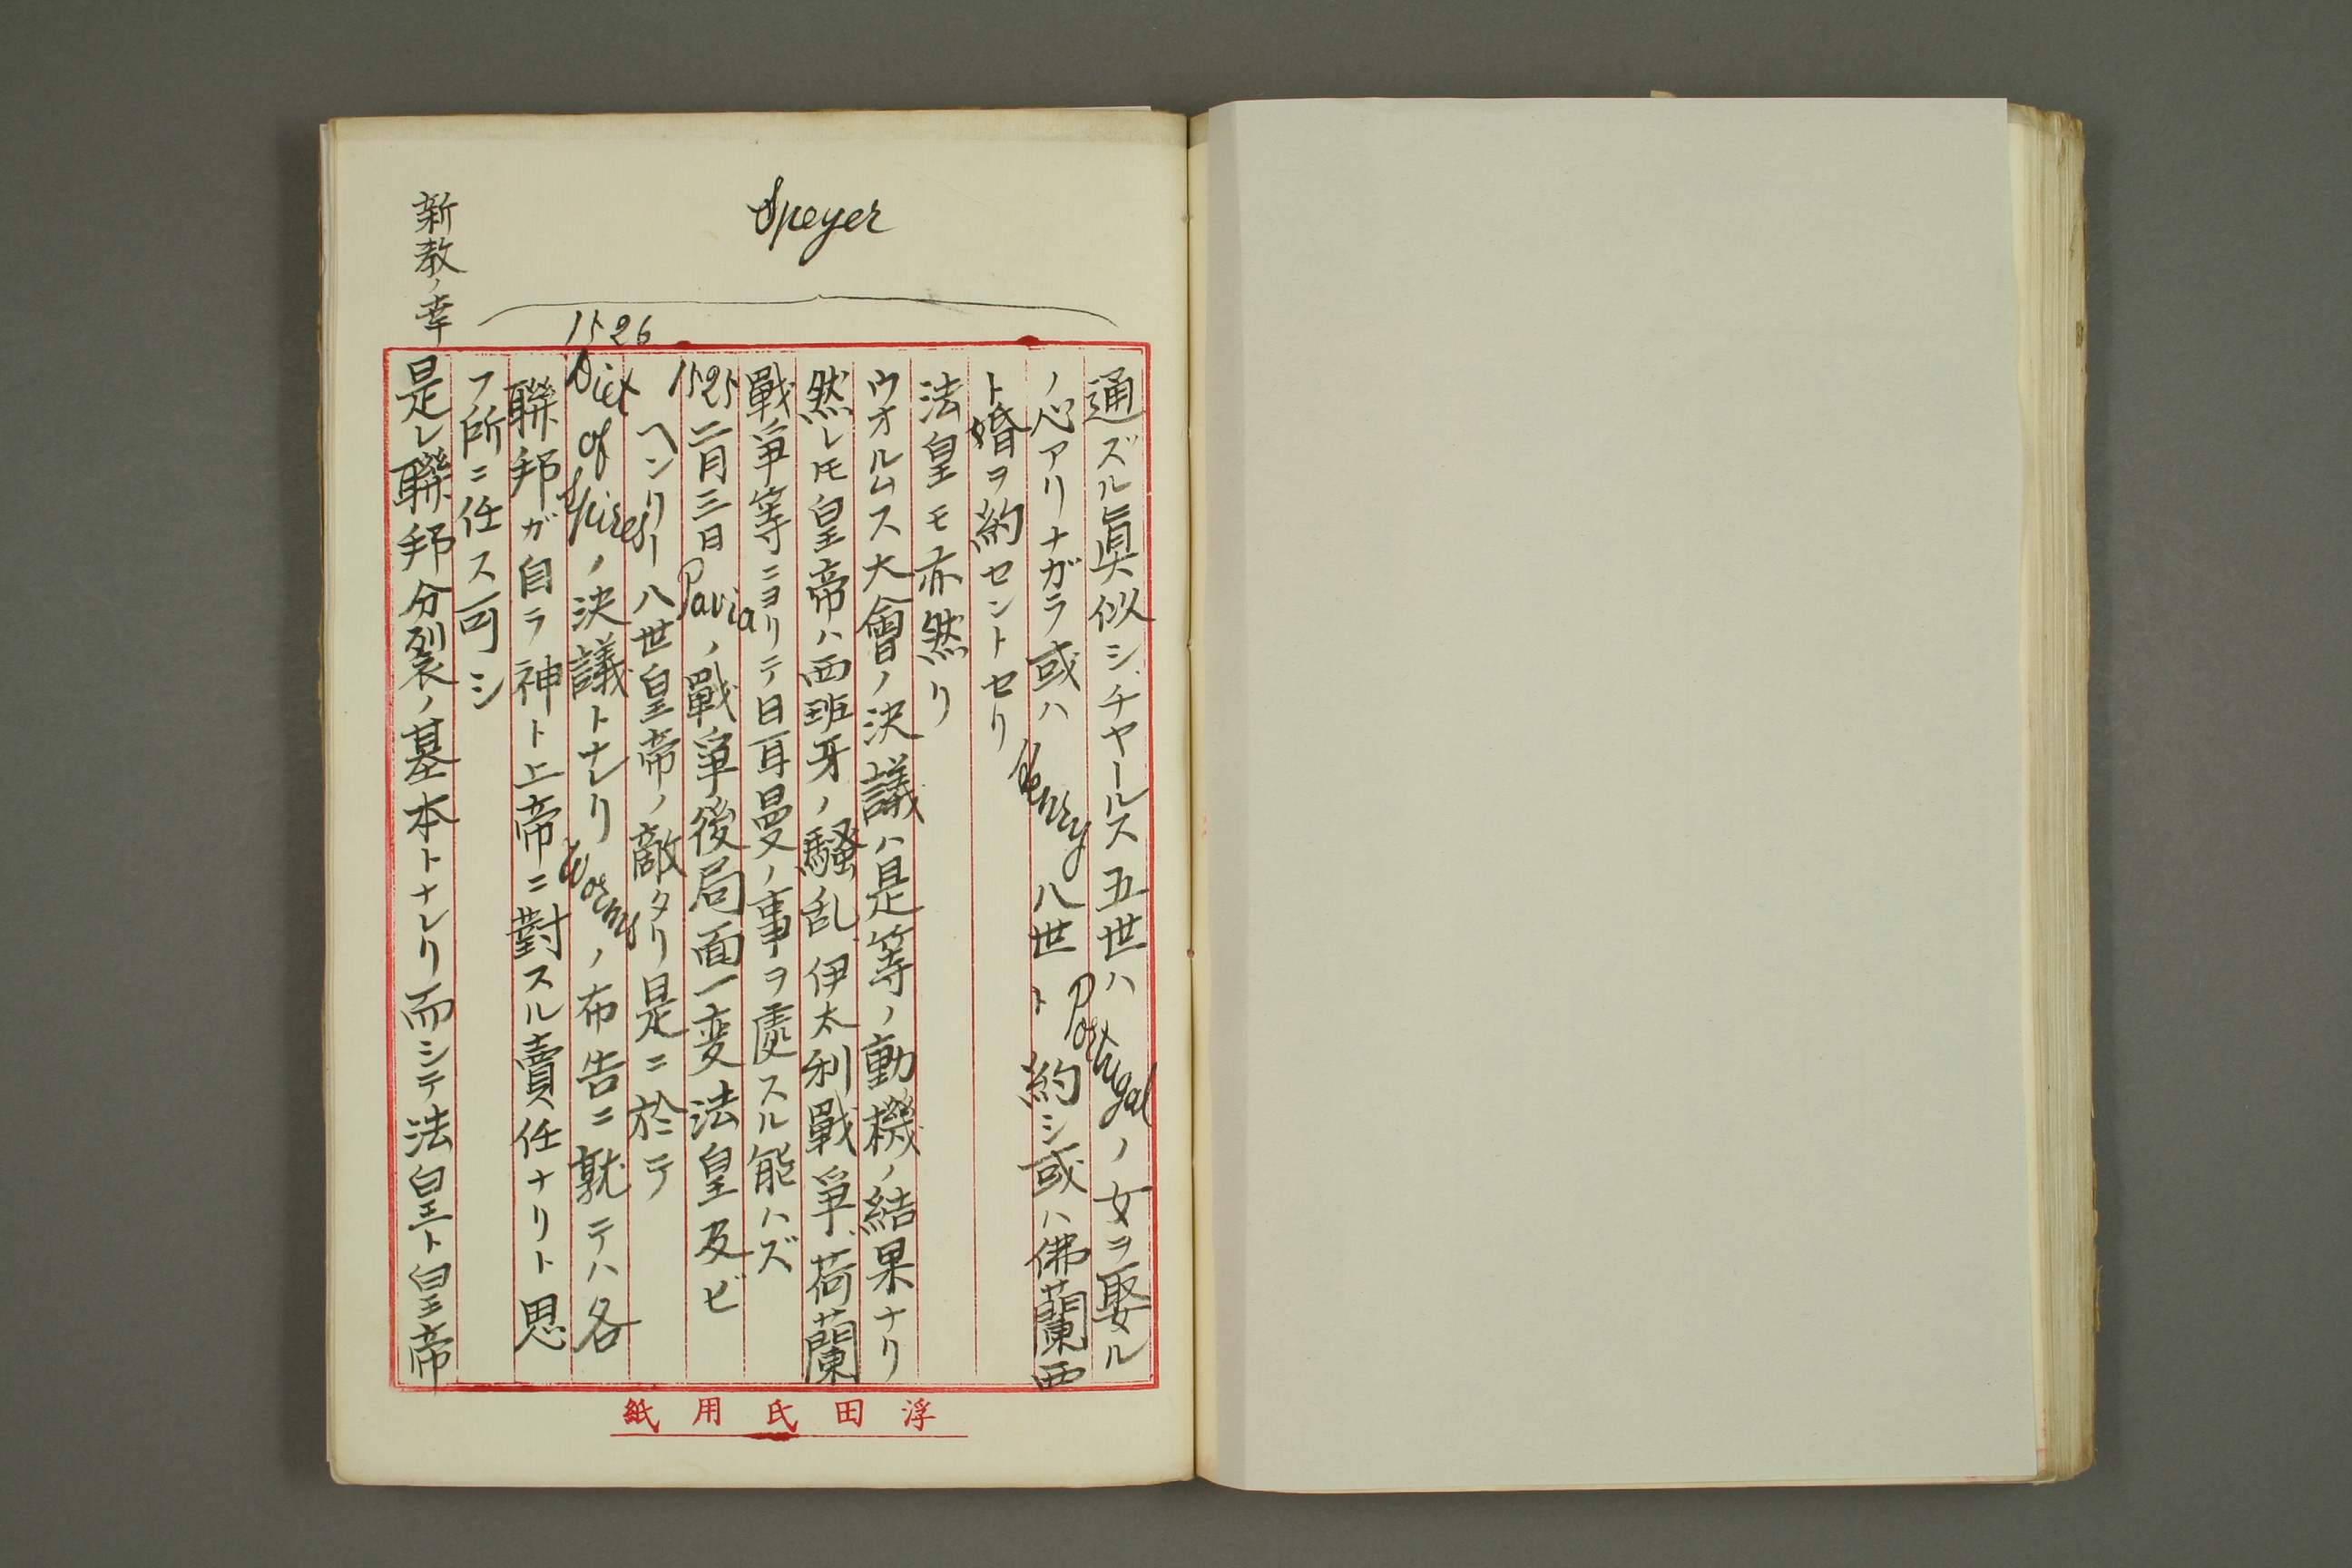 Speyer
通ズル眞似シ、チヤールス五世ハPortugalノ女ヲ娶ル
ノ心アリナガラ或ハHenry八世ト約シ或ハ佛蘭西
ト婚ヲ約セントセリ
法皇モ亦然リ
ウオルムス大會ノ決議ハ是等ノ動機ノ結果ナリ
然レ𪜈皇帝ハ西班牙ノ騒乱、伊太利戰爭、荷蘭
戰爭等ニヨリテ日耳曼ノ事ヲ處スル能ハズ
1525二月三日Paviaノ戰爭後局面一変法皇及ビ
ヘンリー八世皇帝ノ敵タリ是ニ於テ
1526
Diet of Spiresノ決議トナレリWormsノ布告ニ就テハ各
聯邦ガ自ラ神ト上帝ニ對スル責任ナリト思
フ所ニ任ス可シ
新教ノ幸
是レ聯邦分裂ノ基本トナレリ而シテ法皇ト皇帝
浮田氏用紙